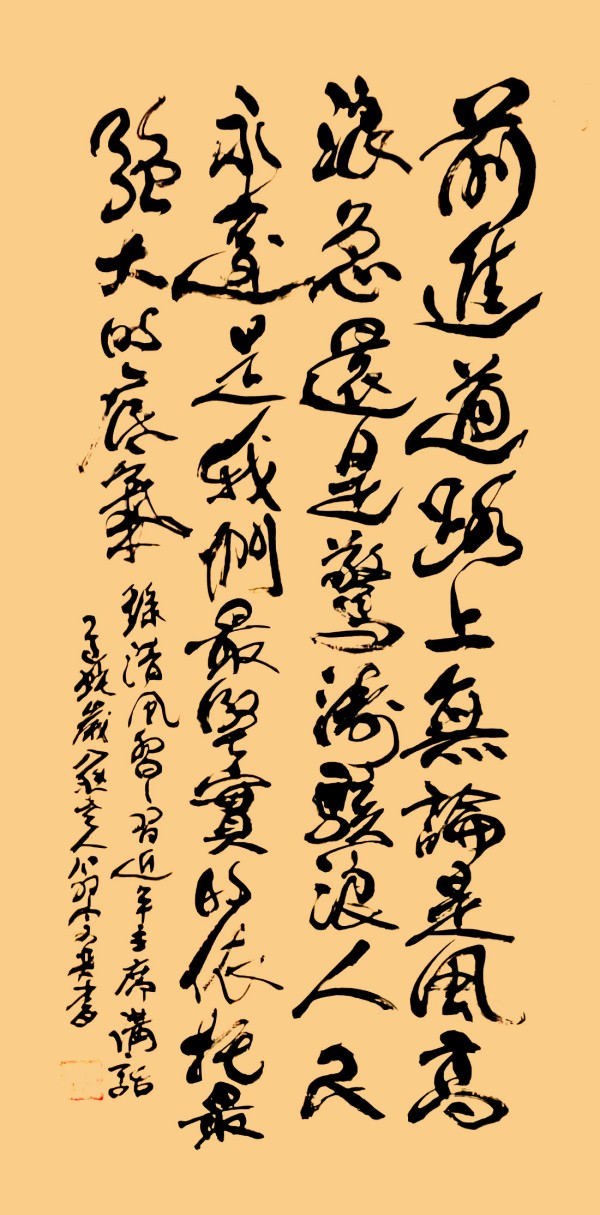 前進道路上無論是風高
浪急還是驚濤駭浪人民
永遠是我們最堅實的依托最
強大的底氣
錄清風習習近平主席講話
歲八老人書